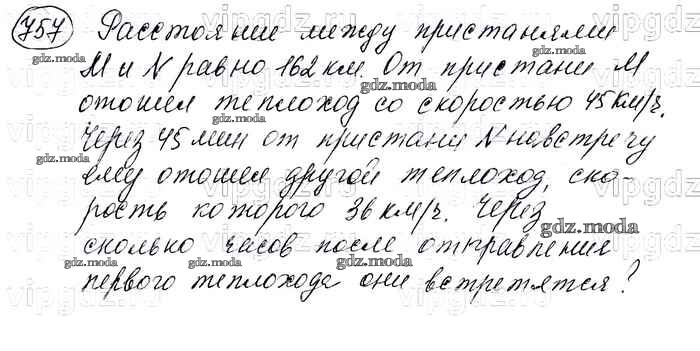 757 Расстояние между пристанями
M и N равно 162 км. От пристани M
отошел теплоход со скоростью 45 км/ч.
Через 45 мин от пристани N навстречу
ему отошел другой теплоход, ско-
рость которого 36 км/ч. Через
сколько часов после отправления
первого теплохода они встретятся?